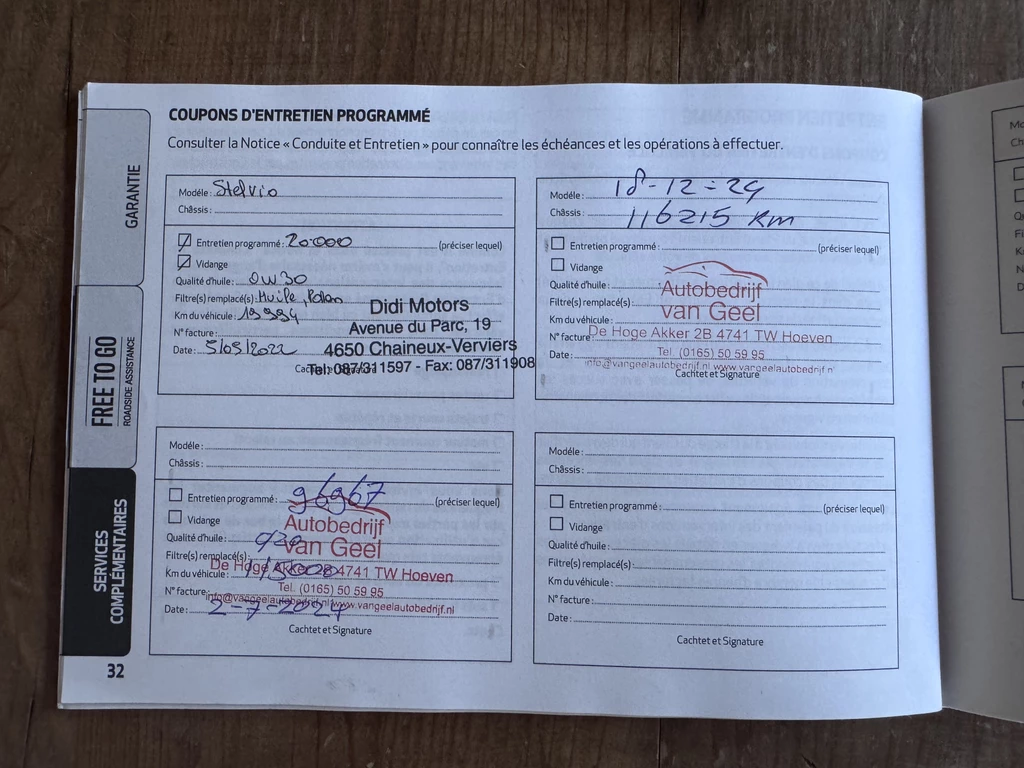 COUPONS D'ENTRETIEN PROGRAMMÉ
Consulter la Notice « Conduite et Entretien » pour connaître les échéances et les opérations à effectuer.
GARANTIE
FREE TO GO
ROADSIDE ASSISTANCE
SERVICES
COMPLÉMENTAIRES
32
Modéle: Stelvio
Châssis:
Entretien programmé: 20.000 (préciser lequel)
Vidange
Qualité d'huile: 0W30
Filtre(s) remplacé(s): Huile,
Km du véhicule: 19994
N° facture:
Date: 5/05/2022
Cachet
Didi Motors
Avenue du Parc, 19
4650 Chaineux-Verviers
Tel: 087/311597 - Fax: 087/311908
Modéle: 18-12-24
Châssis: 116215 km
Entretien programmé: (préciser lequel)
Vidange
Qualité d'huile:
Filtre(s) remplacé(s):
Km du véhicule:
N° facture:
Date:
Autobedrijf
van Geel
De Hoge Akker 2B 4741 TW Hoeven
Tel. (0165) 50 59 95
info@vangeelautobedrijf.nl www.vangeelautobedrijf.n
Cachtet et Signature
Modéle:
Châssis:
Entretien programmé: 96967 (préciser lequel)
Vidange
Qualité d'huile:
Filtre(s) remplacé(s):
Km du véhicule:
N° facture:
Date: 2-7-2024
Autobedrijf
van Geel
De Hoge Akker 2B 4741 TW Hoeven
Tel. (0165) 50 59 95
info@vangeelautobedrijf.nl www.vangeelautobedrijf.nl
Cachtet et Signature
Modéle:
Châssis:
Entretien programmé: (préciser lequel)
Vidange
Qualité d'huile:
Filtre(s) remplacé(s):
Km du véhicule:
N° facture:
Date:
Cachtet et Signature